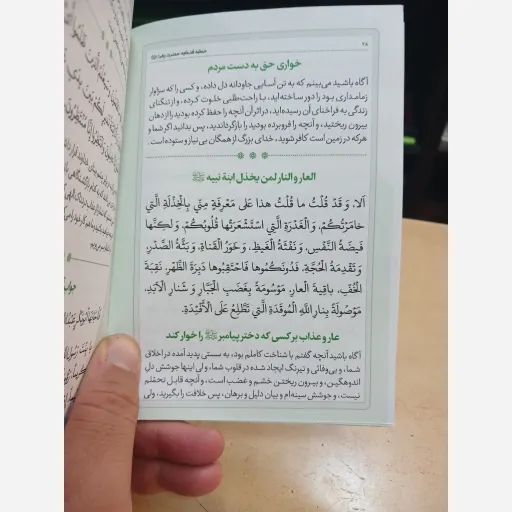 ۲۸
خطبه فدکیه حضرت زهرا
خواری حق به دست مردم
آگاه باشید می‌بینم که به تن آسایی جاودانه دل داده، و کسی را که سزاوار
زمامداری بود را دور ساخته‌اید، با راحت‌طلبی خلوت کرده، و از تنگنای
زندگی به فراخنای آن رسیده‌اید، در اثر آن آنچه را حفظ کرده بودید را از دهان
بیرون ریختید، و آنچه را فروبرده بودید را بازگرداندید، پس بدانید اگر شما و
هر که در زمین است کافر شوید، خدای بزرگ از همگان بی‌نیاز و ستوده است.
العار و النار لمن یخذل ابنة نبیه ﷺ
اَلا، وَ قَدْ قُلْتُ ما قُلْتُ هذا عَلی مَعْرِفَةٍ مِنّی بِالْخِذْلَةِ الَّتی
خامَرَتْکُمْ، وَ الْغَدْرَةِ الَّتِی اسْتَشْعَرَتْها قُلُوبُکُمْ، وَ لکِنَّها
فَیْضَةُ النَّفْسِ، وَ نَفْثَةُ الْغَیْظِ، وَ خَوَرُ الْقَناةِ، وَ بَثَّةُ الصَّدْرِ،
وَ تَقْدِمَةُ الْحُجَّةِ، فَدُونَکُمُوها فَاحْتَقِبُوها دَبِرَةَ الظَّهْرِ، نَقِبَةَ
الْخُفِّ، باقِیَةَ الْعارِ، مَوْسُومَةً بِغَضَبِ الْجَبَّارِ وَ شَنارِ الْاَبَدِ،
مَوْصُولَةً بِنارِ اللَّهِ الْمُوقَدَةِ الَّتی تَطَّلِعُ عَلَی الْاَفْئِدَةِ.
عار و عذاب بر کسی که دختر پیامبر ﷺ را خوار کند
آگاه باشید آنچه گفتم با شناخت کاملم بود، به سستی پدید آمده در اخلاق
شما، و بی‌وفائی و نیرنگ ایجاد شده در قلوب شما، و لی اینها جوشش دل
اندوهگین، و بیرون ریختن خشم و غضب است، و آنچه قابل تحمّلم
نیست، و جوشش سینه‌ام و بیان دلیل و برهان، پس خلافت را بگیرید، ولی